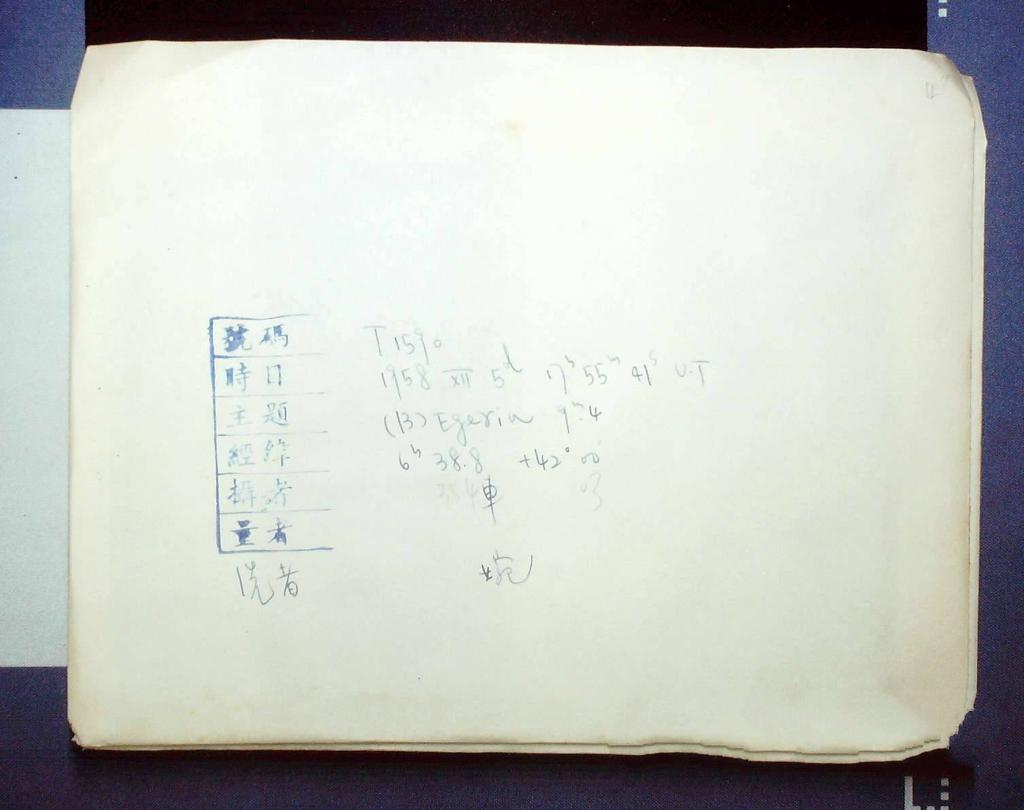 4
號碼 T 1590
時日 1958 XII 5d 17h 55m 41s U.T
主題 (13) Egeria 9m.4
經緯 6h 38.8 +42° 00
攝者 車
量者
洗者 婉